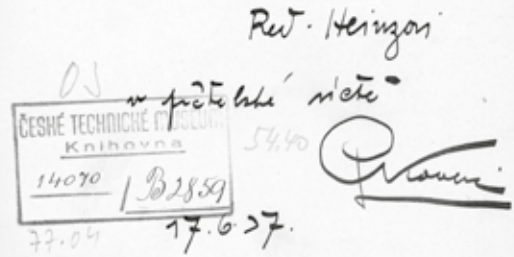 Red. Heinzovi
v přátelské úctě
ČESKÉ TECHNICKÉ MUSEUM
Knihovna
54.40
14070 / B2859
17.6.27.
77.04